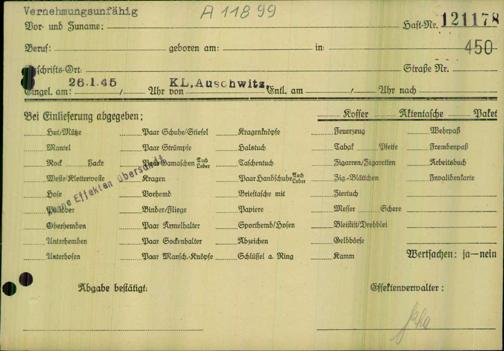 Vernehmungsunfähig A 11899
Vor- und Zuname: Haft-Nr. 121178
Beruf: geboren am: in 450
Anschrifts-Ort: Straße Nr.
26.1.45 KL.Auschwitz,
Eingel. am: / Uhr von Entl. am / Uhr nach
Bei Einlieferung abgegeben: Koffer Aktentasche Paket
Hut/Mütze Paar Schuhe/Stiefel Kragenknöpfe Feuerzeug Wehrpaß
Mantel Paar Strümpfe Halstuch Tabak Pfeife Fremdenpaß
Rock Jacke Paar Gamaschen Tuch Leder Taschentuch Zigarren/Zigaretten Arbeitsbuch
Weste/Kletterweste Kragen Paar Handschuhe Tuch Leder Zig-Blättchen Invalidenkarte
Hose Vorhemd Brieftasche mit Ziertuch
Pullover Binder/Fliege Papiere Messer Schere
Oberhemden Paar Ärmelhalter Sporthemd/Hosen Bleistift/Drehblei
Unterhemden Paar Sockenhalter Abzeichen Geldbörse
Unterhosen Paar Mansch.-Knöpfe Schlüssel a. Ring Kamm
Wertsachen: ja—nein
Effekten übersandt
Abgabe bestätigt: Effektenverwalter: